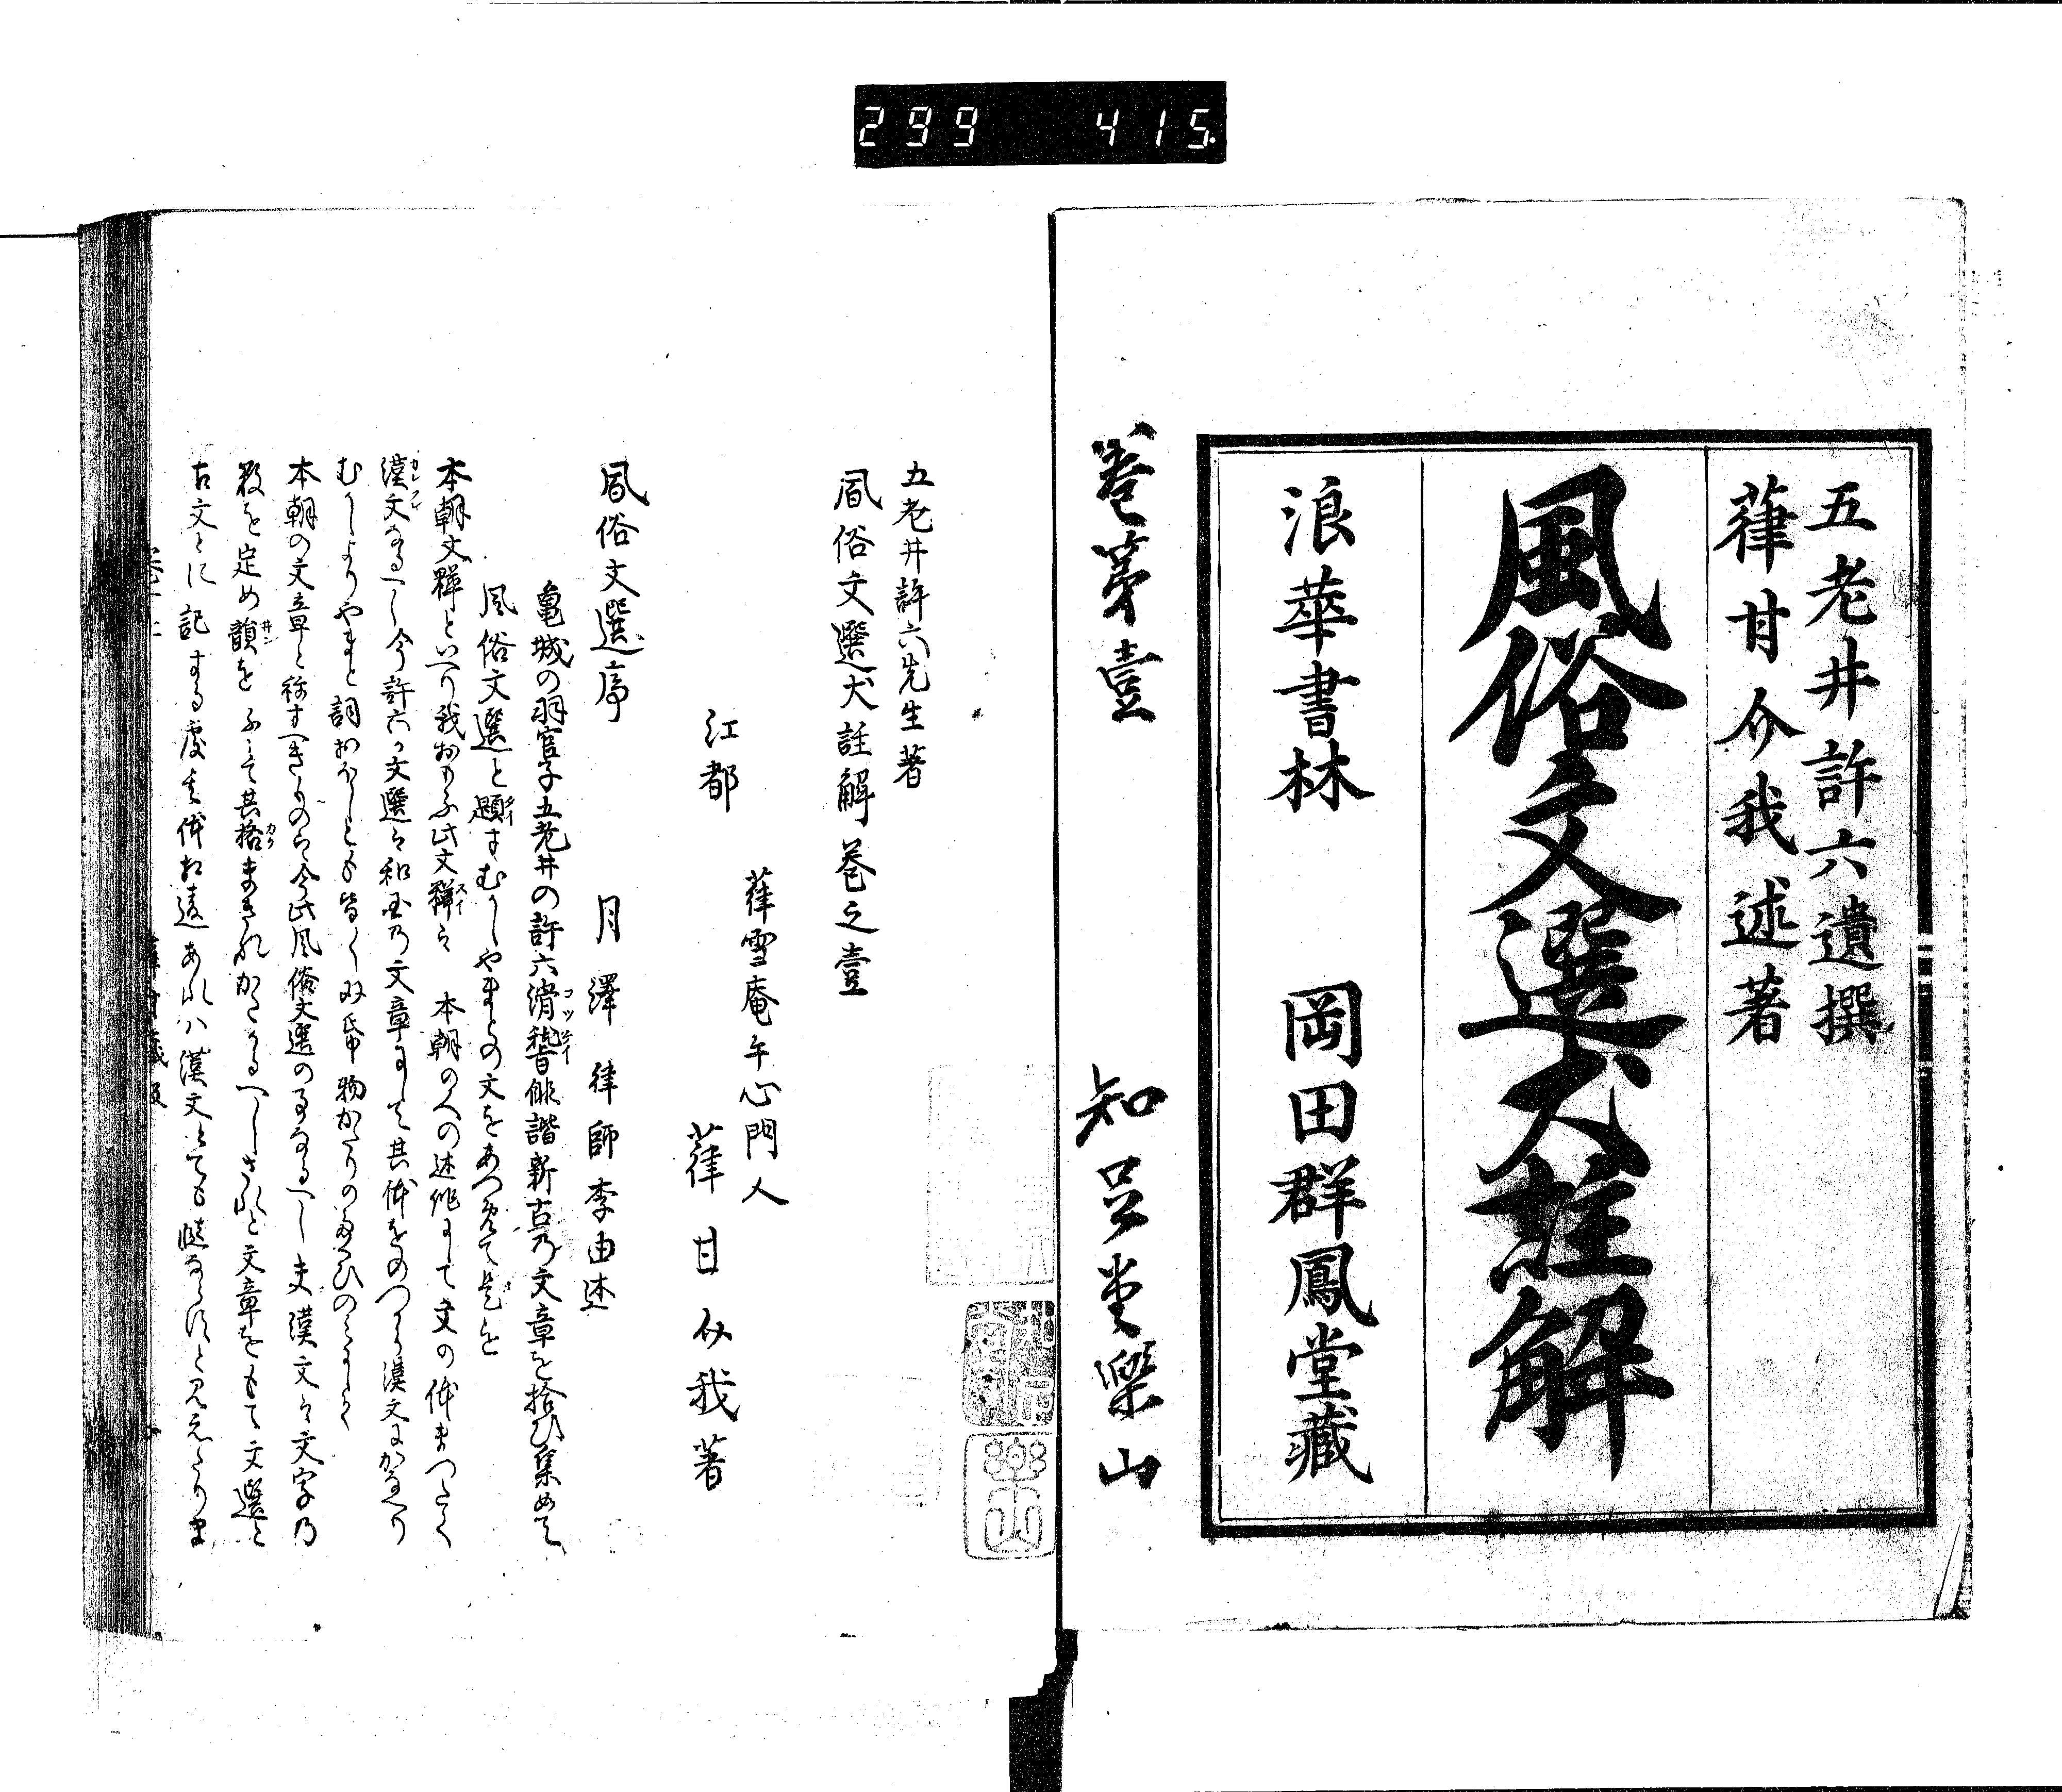 299 415
五老井許六遺撰
葎甘介我述著
風俗文選犬註解
浪華書林 岡田群鳳堂藏
巻第壹 知足堂樂山
樂山
五老井許六先生著
風俗文選犬註解巻之壹
葎雪庵午心門人
江都 葎甘介我著
風俗文選序 月澤律師李由述
亀城の羽官子五老井の許六滑稽俳諧新古乃文章を拾ひ集めて
風俗文選と題すむかしやまとの文をあつめて是を
本朝文粋といへり我おもふ此文粋は 本朝の人の述作にして文の体まつたく
漢文なるへし今許六か文選は和国乃文章にして其体をのつから漢文にかなへり
むかしよりやまと詞おほしとも皆
本朝の文章と称すへきものは今此風俗文選の事なるへし夫漢文は文字乃
数を定め韻をふみて其格まきれかたかるへしされと文章をもて文選と
古文とに記する處其体相違あれハ漢文とても